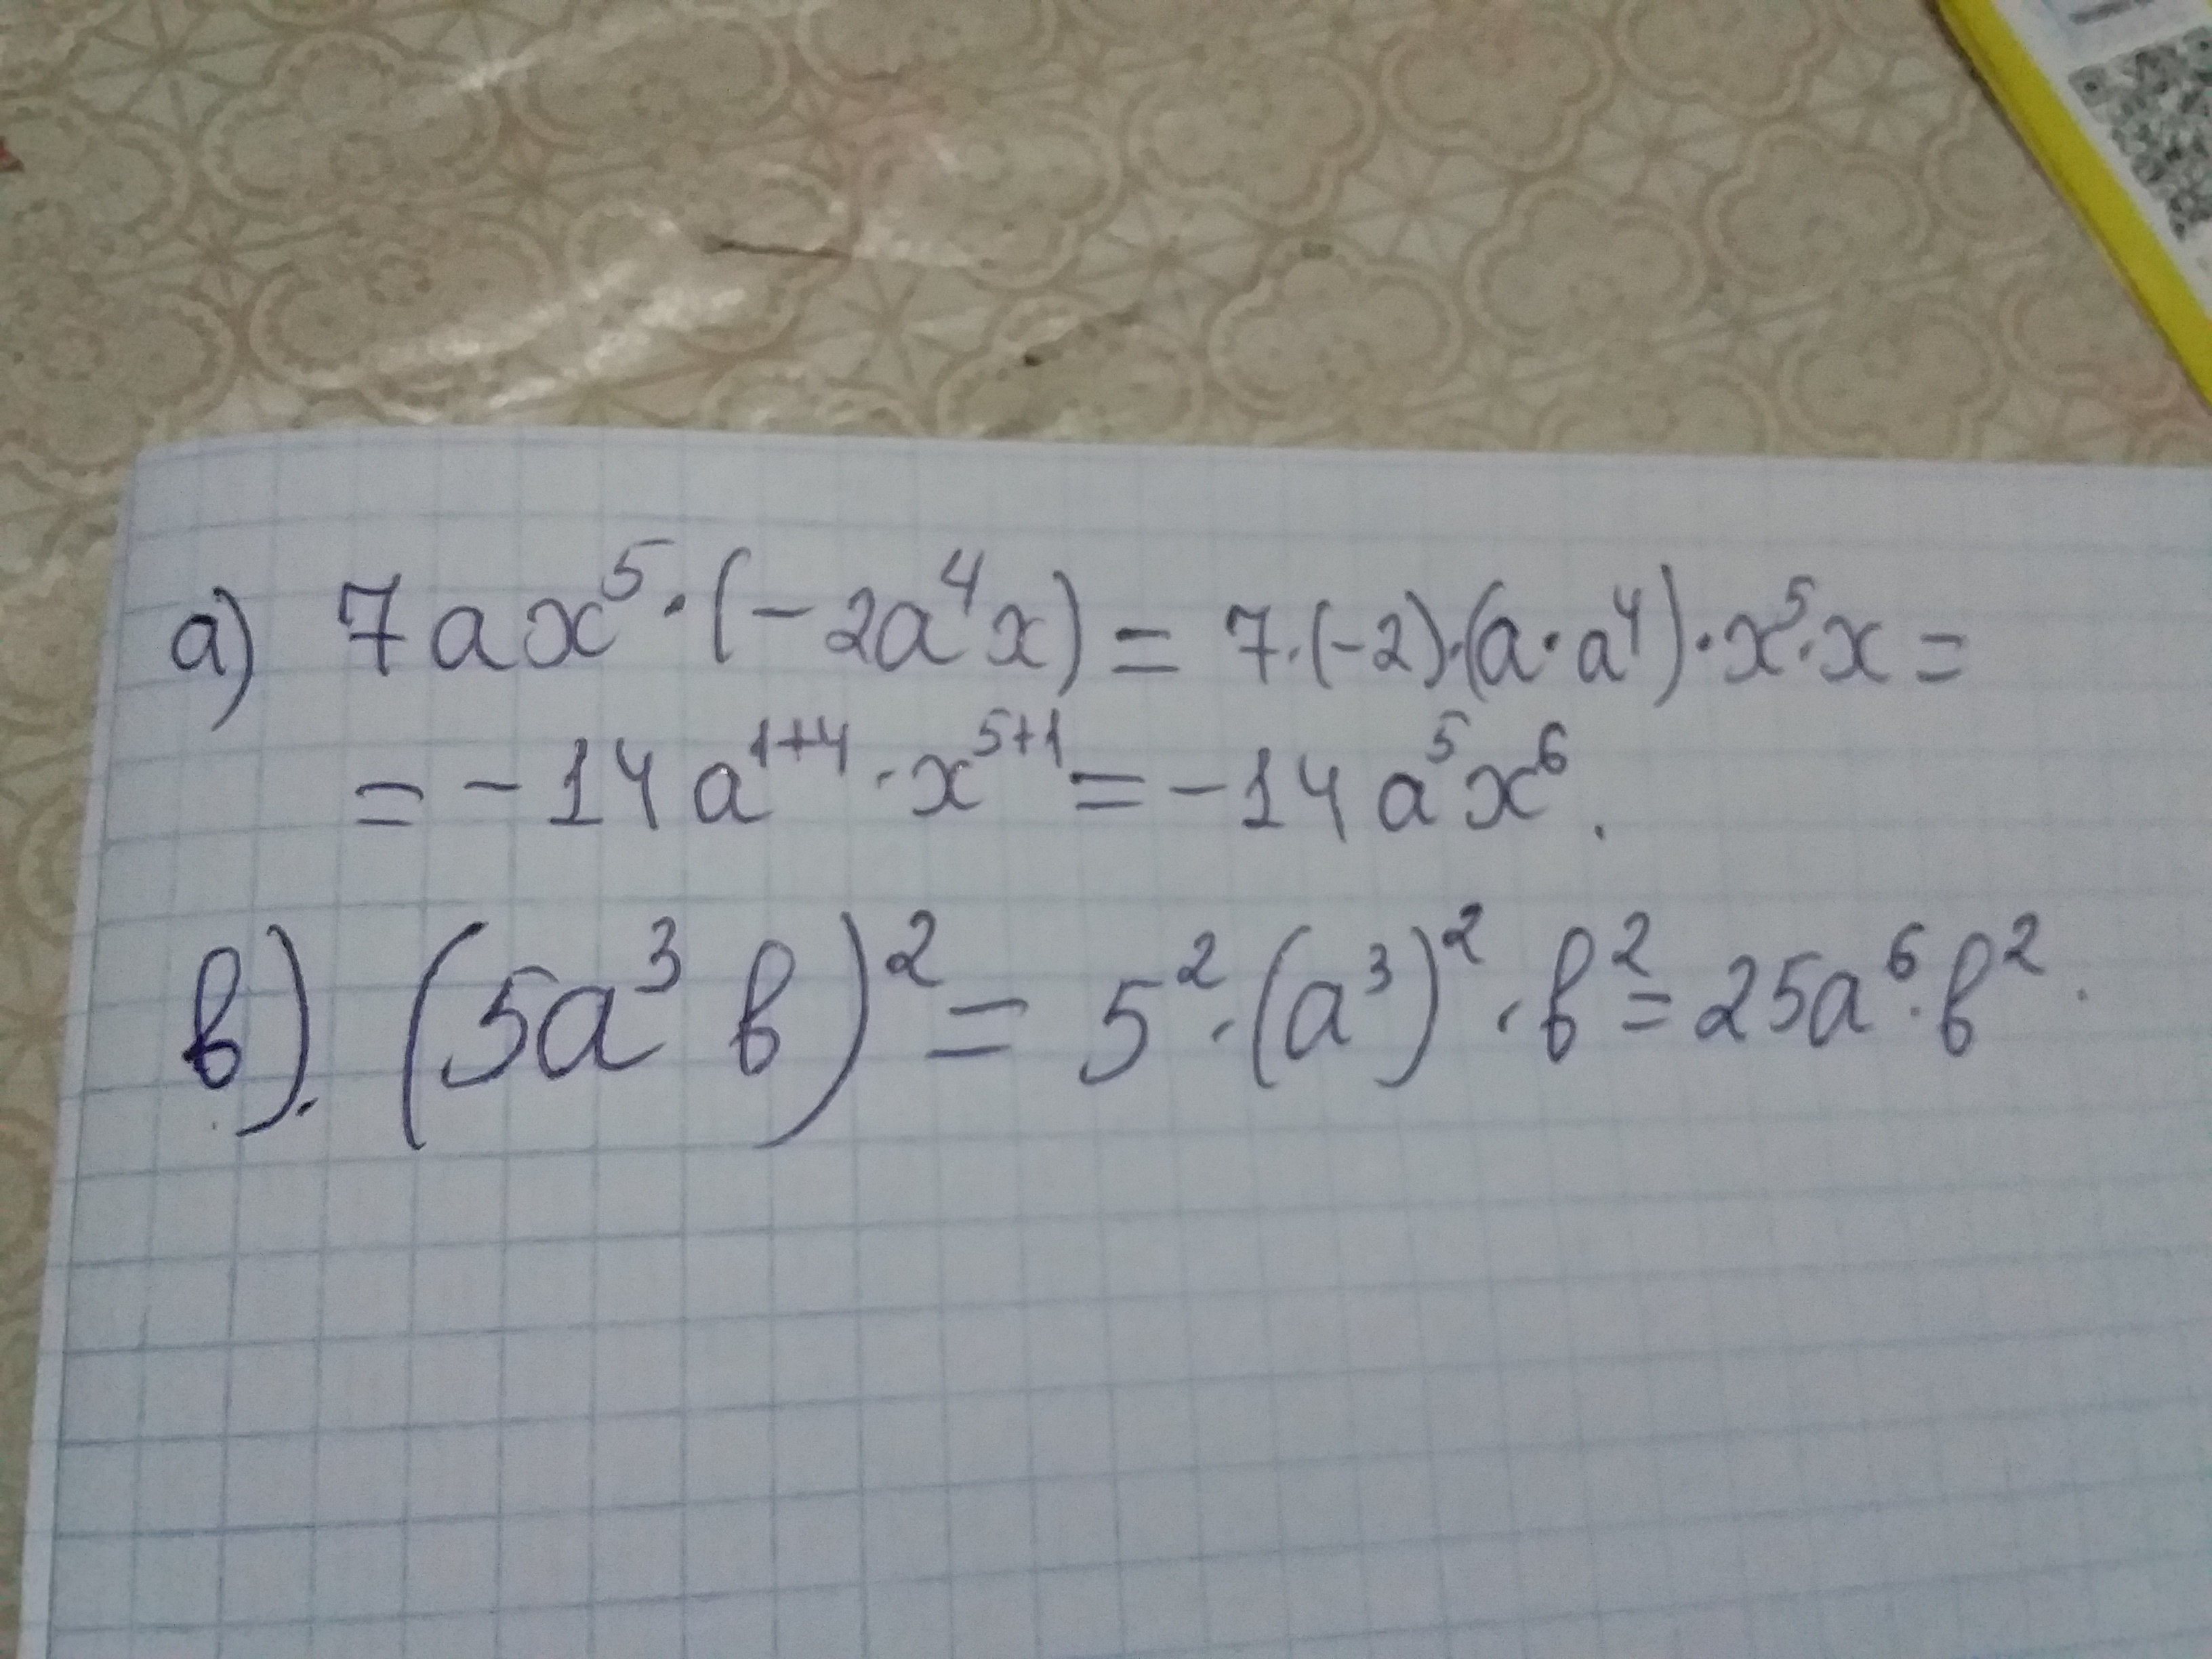 а) 7ax⁵·(-2a⁴x) = 7·(-2)·(a·a⁴)·x⁵·x =
= -14a¹⁺⁴·x⁵⁺¹ = -14a⁵x⁶.
в). (5a³b)² = 5²·(a³)²·b² = 25a⁶·b².